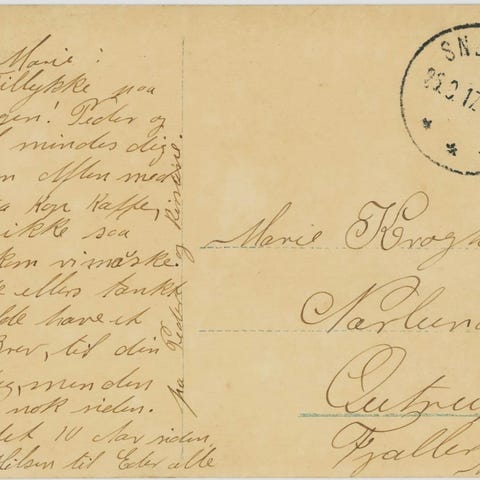 Marie!
Tillykke paa
gen! Peder og
mindes dig
Aften med
Kop Kaffe,
ikke saa
kom vi maaske
ellers tænkt
de have et
Brev, til din
men den
nok siden.
det 10 Aar siden,
Hilsen til Eder alle
fra Peder og Kirstine.
SNJ
Marie Krogh
Nørlund
Fjeller